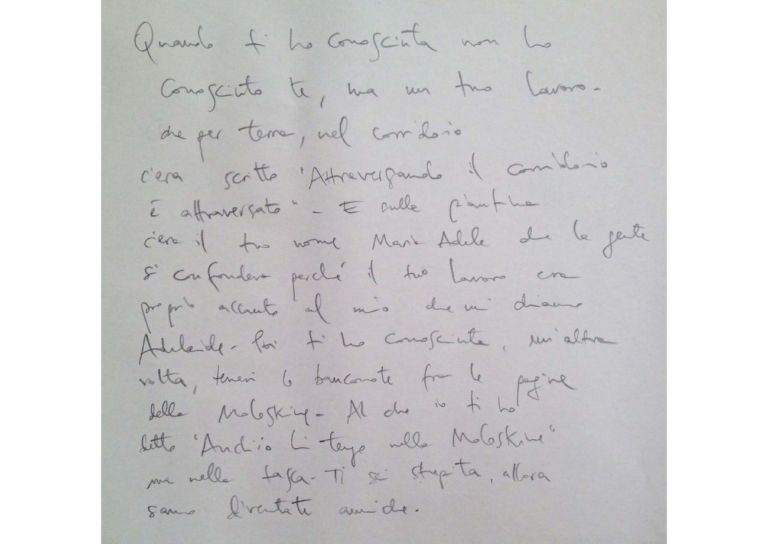 Quando ti ho conosciuta non ho
conosciuto te, ma un tuo lavoro -
che per terra, nel corridoio
c'era scritto "Attraversando il corridoio
è attraversato" - E sulle piantine
c'era il tuo nome Maria Adele che la gente
si confondeva perché il tuo lavoro era
proprio accanto al mio che mi chiamo
Adelaide - Poi ti ho conosciuta, un'altra
volta, tenevi le banconote fra le pagine
della Moleskine - Al che io ti ho
detto "Anch'io li tengo nella Moleskine"
ma nella tasca - Ti sei stupita, allora
siamo diventate amiche.